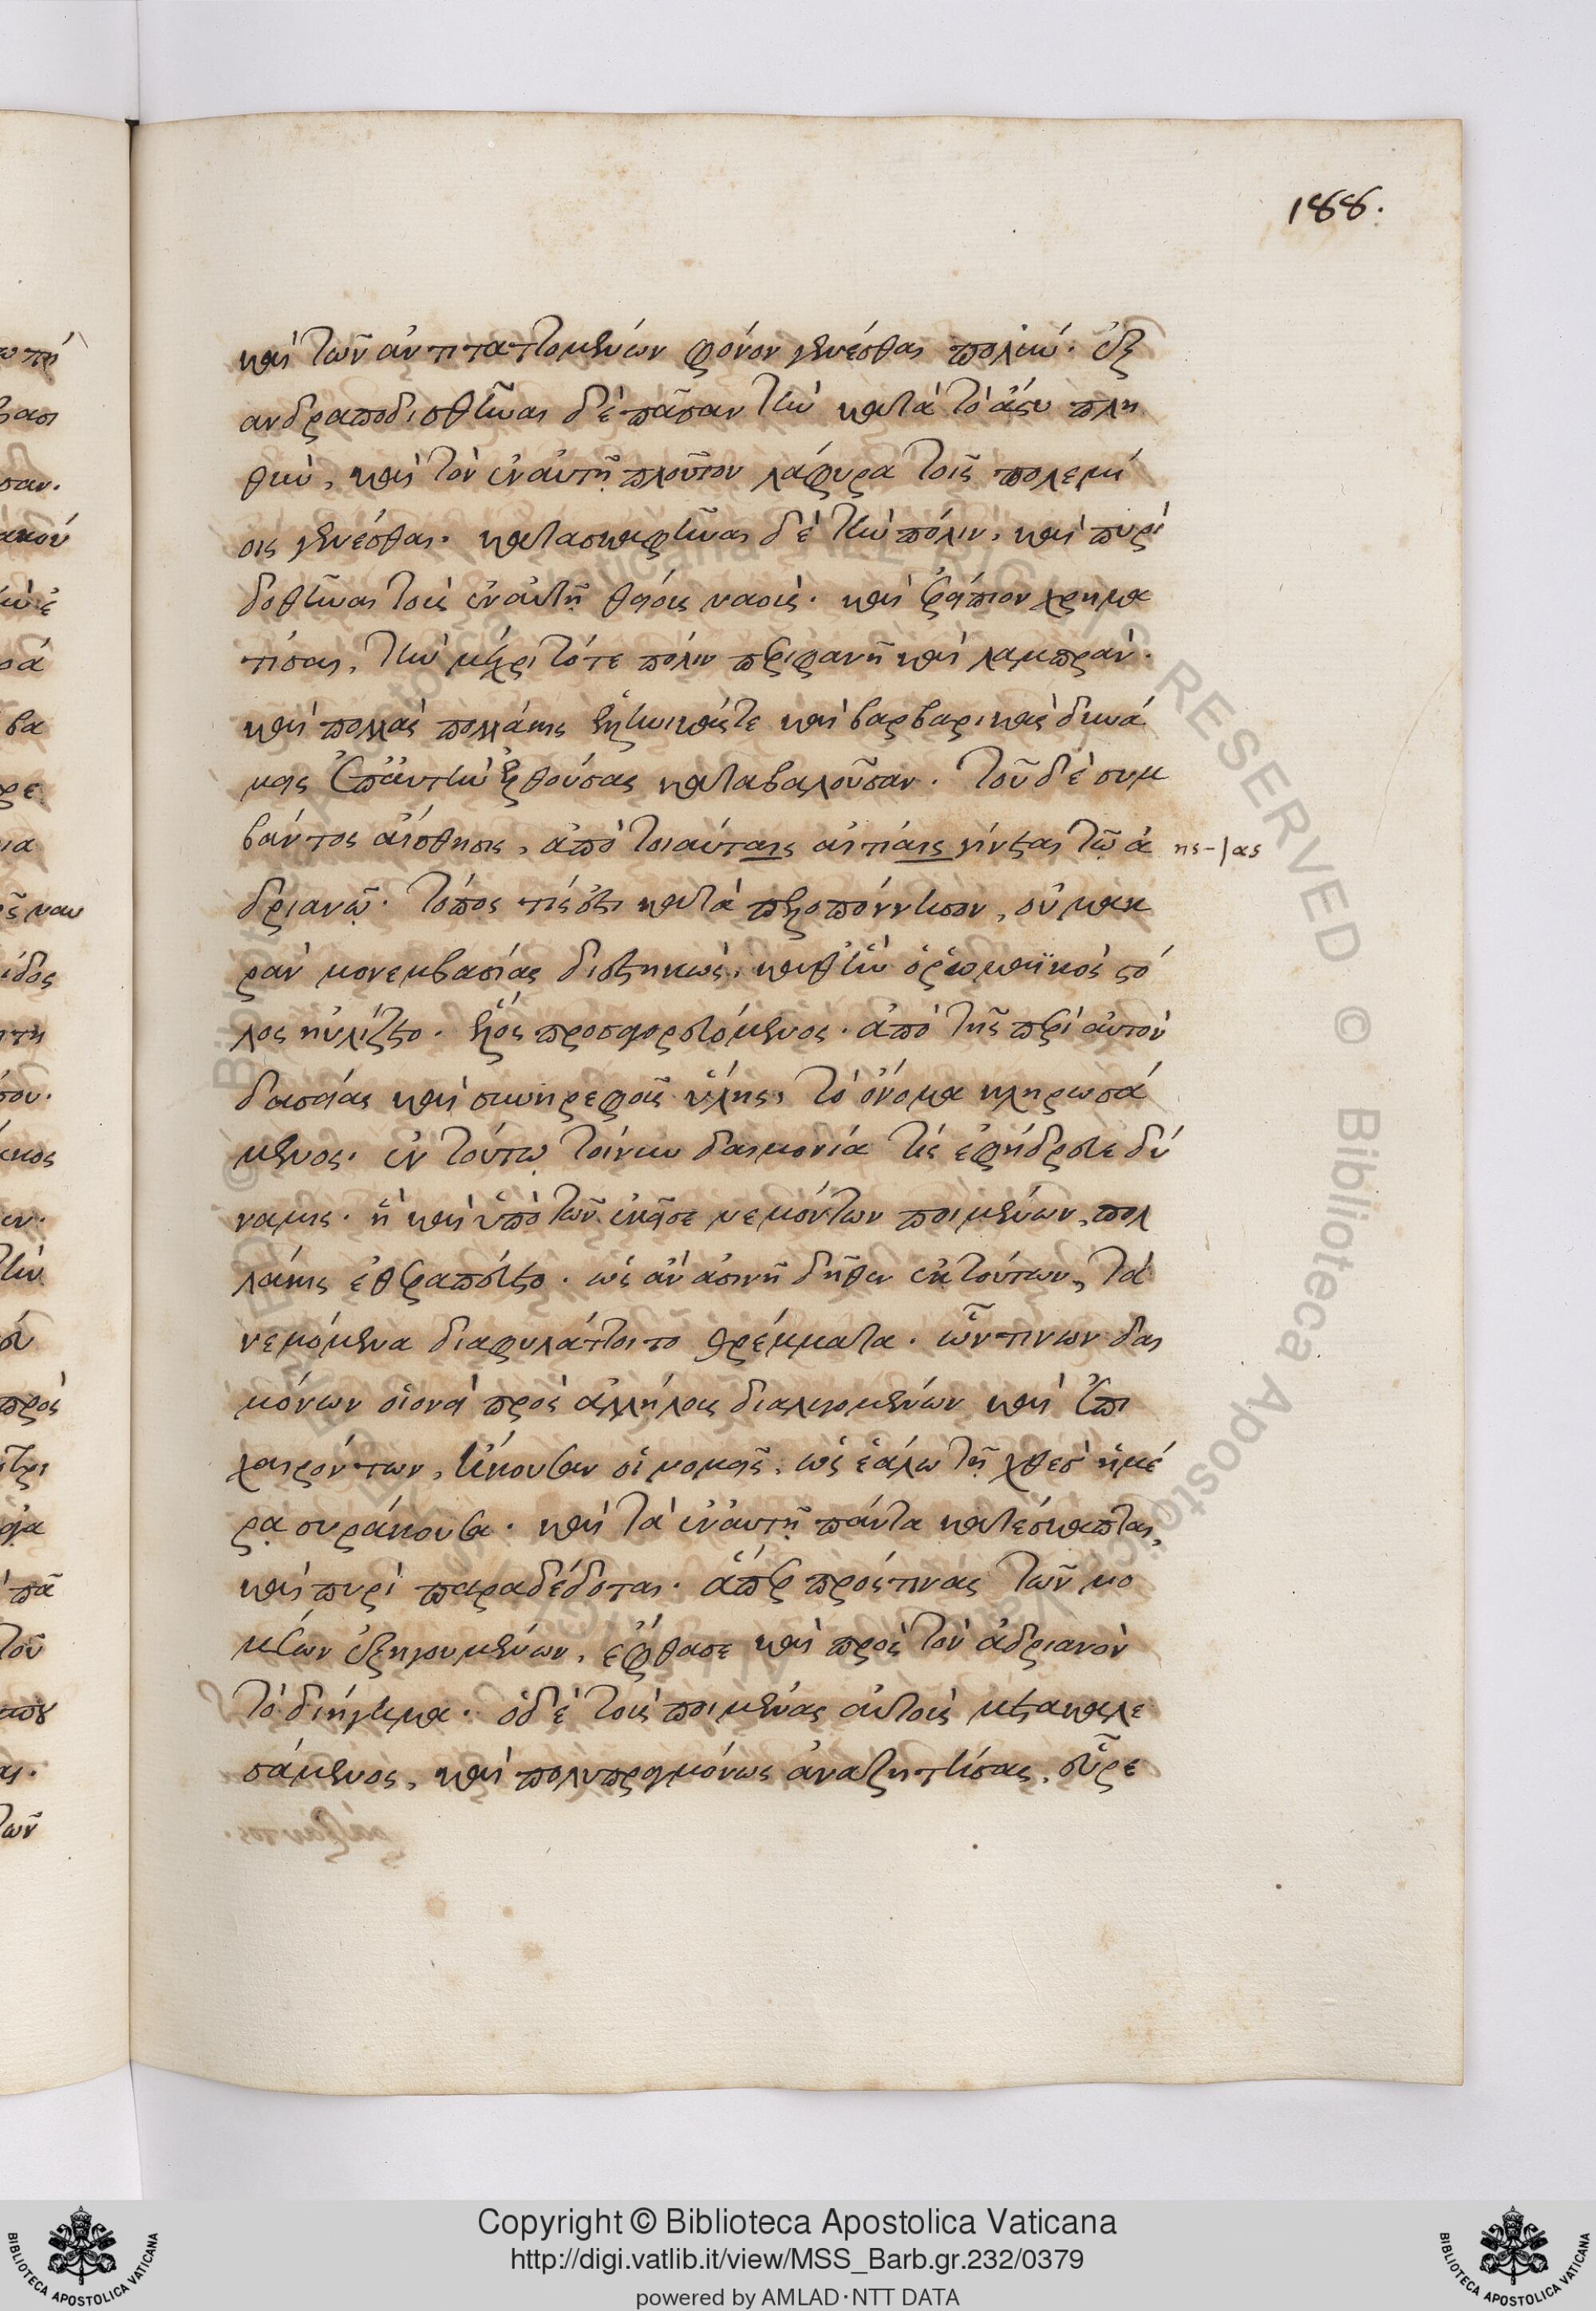 188.
καὶ τῶν ἀντιταττομένων φόνον γενέσθαι πολὺν. ἐξ
ανδραποδισθῆναι δὲ πᾶσαν τὴν κατὰ τὸ ἄστυ πλη
θὺν, καὶ τὸν ἐν αὐτῆ πλοῦτον λάφυρα τοῖς πολεμί
οις γενέσθαι. κατασκαφῆναι δὲ τὴν πόλιν, καὶ πυρὶ
δοθῆναι τοὺς ἐν αὐτῆ θείους ναοὺς. καὶ ἐρείπιον χρημα
τίσαι, τὴν μέχρι τότε πόλιν περιφανῆ καὶ λαμπρὰν.
καὶ πολλὰς πολλάκις ἑλληνικάς τε καὶ βαρβαρικὰς δυνά
μεις ἐπ' αὐτὴν ἐλθούσας καταβαλοῦσαν. τοῦ δὲ συμ
βάντος αἴσθησις, ἀπὸ τοιαύταις αἰτίαις γίνεται τῶ ἀ
ης-|ας
δριανῶ. τόπος τίς ἐστι κατὰ πελοπόννησον, οὐ μακ
ρὰν μονεμβασίας διεστηκὼς, καθ' ἣν ὁ ῥωμαϊκὸς στό
λος ηὐλίζετο. ἕλος προσαγορευόμενος. ἀπὸ τῆς περὶ αὐτὸν
δασείας καὶ συνηρεφοῦς ὕλης, τὸ ὄνομα κληρωσά
μενος. ἐν τούτω τοίνυν δαιμονία τὶς ἐφήδρευε δύ
ναμις. ἣ καὶ ὑπὸ τῶν ἐκεῖσε νεμόντων ποιμένων, πολ
λάκις ἐθεραπεύετο. ὡς ἂν ἀσινῆ δῆθεν ἐκ τούτων, τὰ
νεμόμενα διαφυλάττοιτο θρέμματα. ὧν τινων δαι
μόνων οἱονεὶ πρὸς ἀλλήλους διαλεγομένων καὶ ἐπι
χαιρόντων, ἤκουσαν οἱ νομεῖς, ὡς ἑάλω τῆ χθὲς ἡμέ
ρα συράκουσα. καὶ τὰ ἐν αὐτῆ πάντα κατέσκαπται,
καὶ πυρὶ παραδέδοται. ἅπερ πρός τινας τῶν νο
μέων ἐξηγουμένων, ἔφθασε καὶ πρὸς τὸν ἀδριανὸν
τὸ διήγημα. ὁ δὲ τοὺς ποιμένας αὐτοὺς μετακαλε
σάμενος, καὶ πολυπραγμόνως ἀναζητήσας, εὗρε
Copyright © Biblioteca Apostolica Vaticana
http://digi.vatlib.it/view/MSS_Barb.gr.232/0379
powered by AMLAD·NTT DATA
BIBLIOTECA APOSTOLICA VATICANA
BIBLIOTECA APOSTOLICA VATICANA